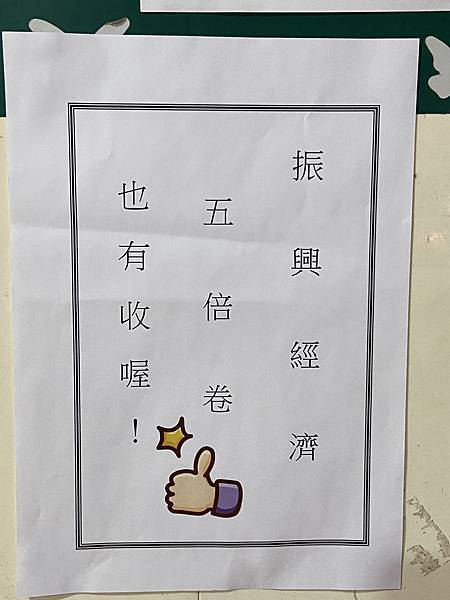 振興經濟
五倍卷
也有收喔！